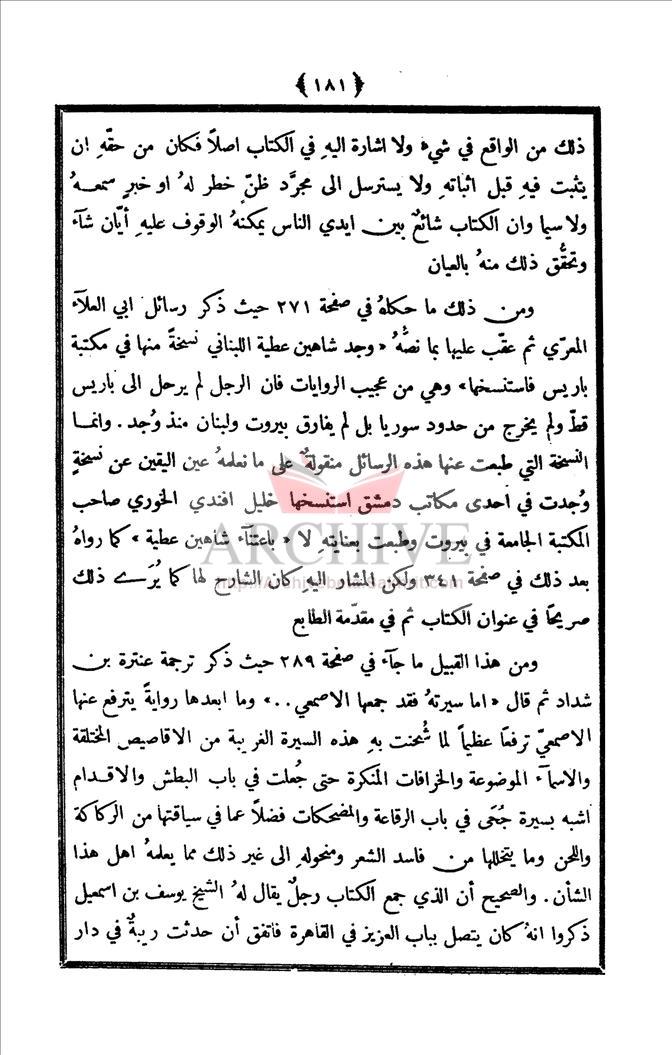 ﴿١٨١﴾
ذلك من الواقع في شيء ولا اشارة اليهِ في الكتاب اصلاً فكان من حقّهِ ان
يتثبت فيهِ قبل اثباتهِ ولا يسترسل الى مجرَّد ظنّ خطر لهُ او خبرٍ سمعهُ
ولا سيما وان الكتاب شائعٌ بين ايدي الناس يمكنهُ الوقوف عليهِ أيّان شآء
وتحقُّق ذلك منهُ بالعيان
ومن ذلك ما حكاهُ في صفحة ٢٧١ حيث ذكر رسائل ابي العلآء
المعرّي ثم عقّب عليها بما نصّهُ « وجد شاهين عطية اللبناني نسخةً منها في مكتبة
باريس فاستنسخها » وهي من عجيب الروايات فان الرجل لم يرحل الى باريس
قطّ ولم يخرج من حدود سوريا بل لم يفارق بيروت ولبنان منذ وُجد . وانما
النسخة التي طبعت عنها هذه الرسائل منقولةٌ على ما نعلمهُ عين اليقين عن نسخةٍ
وُجدت في احدى مكاتب دمشق استنسخها خليل افندي الخوري صاحب
المكتبة الجامعة في بيروت وطبعت بعنايتهِ لا « باعتنآء شاهين عطية » كما رواهُ
بعد ذلك في صفحة ٣٤١ ولكن المشار اليهِ كان الشارح لها كما يُرَى ذلك
صريحًا في عنوان الكتاب ثم في مقدّمة الطابع
ومن هذا القبيل ما جآء في صفحة ٢٨٩ حيث ذكر ترجمة عنترة بن
شداد ثم قال « اما سيرتهُ فقد جمعها الاصمعي . . » وما ابعدها روايةً يترفع عنها
الاصمعيّ ترفعًا عظيمًا لما شُحنت بهِ هذه السيرة الغريبة من الاقاصيص المختلقة
والاسمآء الموضوعة والخرافات المنكرة حتى جُعلت في باب البطش والاقدام
اشبه بسيرة جُحَى في باب الرقاعة والمضحكات فضلاً عما في سياقتها من الركاكة
واللحن وما يتخللها من فاسد الشعر ومنحولهِ الى غير ذلك مما يعلمهُ اهل هذا
الشأن . والصحيح أن الذي جمع الكتاب رجلٌ يقال لهُ الشيخ يوسف بن اسمعيل
ذكروا انهُ كان يتصل بباب العزيز في القاهرة فاتفق أن حدثت ريبةٌ في دار
ARCHIVE